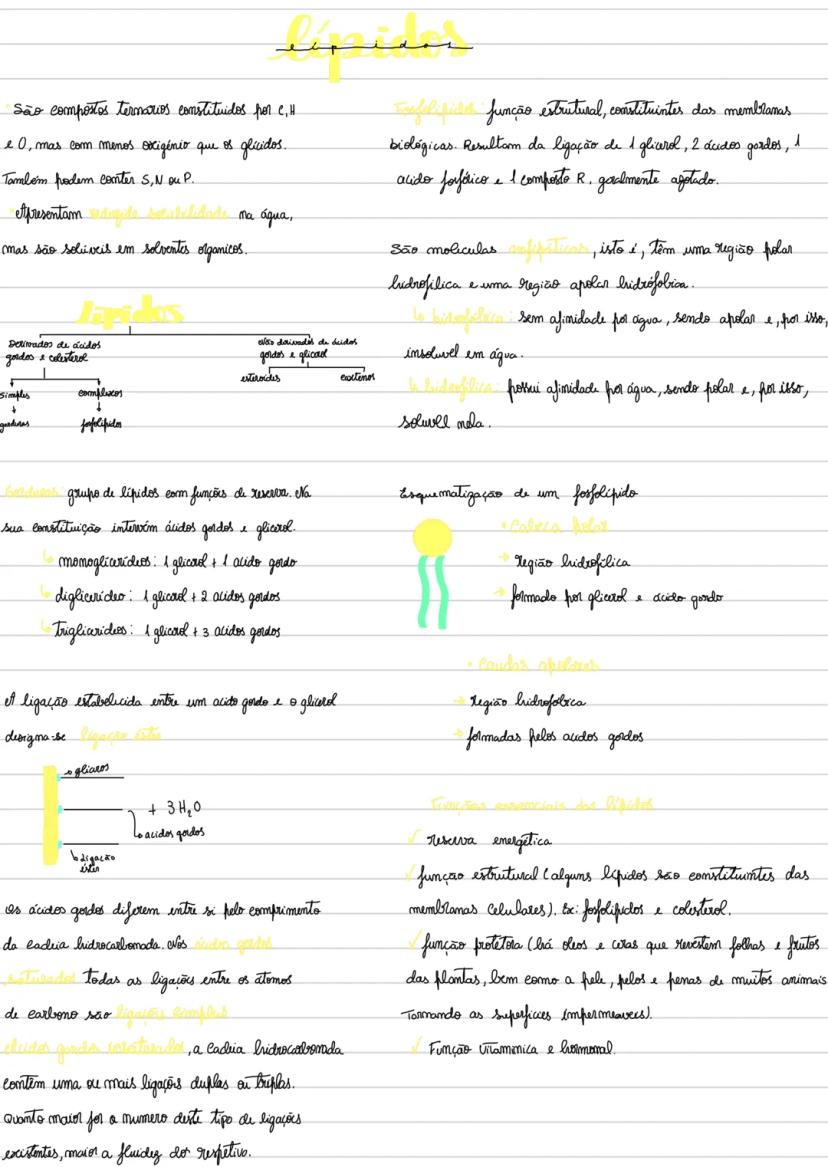 lípidos
lípidos
• São compostos ternários constituídos por C, H
e O, mas com menos oxigénio que os glícidos.
Também podem conter S, N ou P.
• Apresentam reduzida solubilidade na água,
mas são solúveis em solventes orgânicos.
lípidos
Derivados de ácidos
gordos e colesterol
Não derivados de ácidos
gordos e glicerol
simples
complexos
esteroides
gorduras
fosfolípidos
Gorduras: grupo de lípidos com funções de reserva. Na
sua constituição intervém ácidos gordos e glicerol.
↳ monoglicerídeos: 1 glicerol + 1 ácido gordo
↳ diglicerídeo: 1 glicerol + 2 ácidos gordos
↳ Triglicerídeos: 1 glicerol + 3 ácidos gordos
A ligação estabelecida entre um acido gordo e o glicerol
designa-se ligação éster
+ 3 H₂O
↳ acidos gordos
↳ ligação
éster
Os ácidos gordos diferem entre si pelo comprimento
da cadeia hidrocarbonada. Nos ácidos gordos
saturados todas as ligações entre os átomos
de carbono são ligações simples
Ácidos gordos insaturados, a cadeia hidrocarbonada
contém uma ou mais ligações duplas ou triplas.
Quanto maior for o numero deste tipo de ligações
existentes, maior a fluidez do respetivo.
Fosfolípidos: função estrutural, constituintes das membranas
biológicas. Resultam da ligação de 1 glicerol, 2 ácidos gordos, 1
acido fosfórico e 1 composto R, geralmente azotado.
São moléculas anfipáticas, isto é, têm uma região polar
hidrofílica e uma região apolar hidrofóbica.
↳ hidrofóbica: sem afinidade por água, sendo apolar e, por isso,
insoluvel em água.
↳ hidrofílica: possui afinidade por água, sendo polar e, por isso,
soluvel nela.
Esquematização de um fosfolípido
• Cabeça polar
→ região hidrofílica
→ formado por glicerol e ácido gordo
• Caudas apolares
→ região hidrofóbica
→ formadas pelos acidos gordos
Funções essenciais dos lípidos
✓ reserva energética
✓ função estrutural (alguns lípidos são constituintes das
membranas celulares). Ex: fosfolípidos e colesterol.
✓ função protetora (há oleos e ceras que revestem folhas e frutos
das plantas, bem como a pele, pelos e penas de muitos animais
Tornando as superfícies impermeaveis).
✓ Função vitaminica e hormonal.